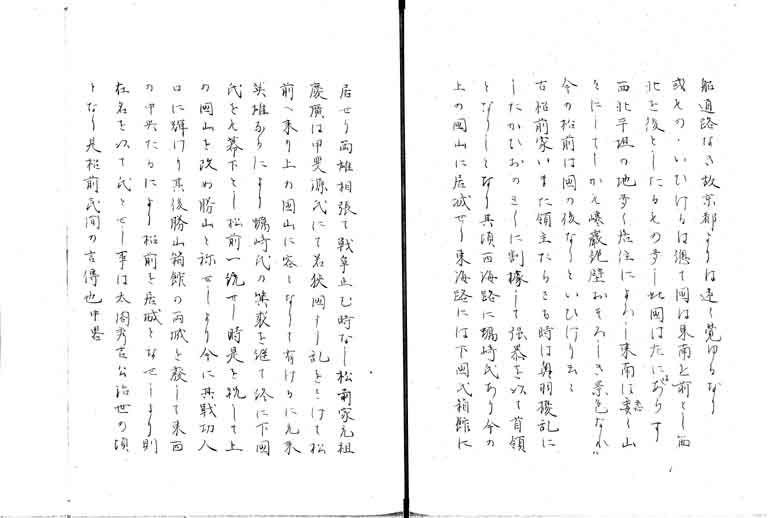 船道路なき故京都よりは遠く覚ゆるなり
或人の・いひけるは惣て国は東南を前とし西
北を後としたるもの多し此国はたにあらす
西北平坦の地多く居住によろし東南は悉く山
々にしてしかも嶮巌絶壁おそろしき景色なれハ
今の松前は国の後なりといひけり云々
古松前家いまた領主たらさる時は奥羽擾乱に
したかひおのまゝに割據して強暴を以て首領
となりしとなり其頃西海路に蠣崎氏あり今の
上の国山に居城せり東海路には下国氏箱館に
居せり両雄相張て戦争止む時なし松前家元祖
慶廣は甲斐源氏にて若狭国より乱をさけて松
前へ来り上の国山に客となりて有けるに元来
英雄なるにより蠣崎氏の業を継て終に下国
氏をも幕下とし松前一統せし時是を祝して上
の国山を改め勝山と称せしより今に其戦功人
口に輝けり其後勝山箱館の両城を廃して東西
の中央たるにより松前を居城となせしより則
在名を以て氏とせし事は太閤秀吉公治世の頃
となり是松前民間の言傳也中畧